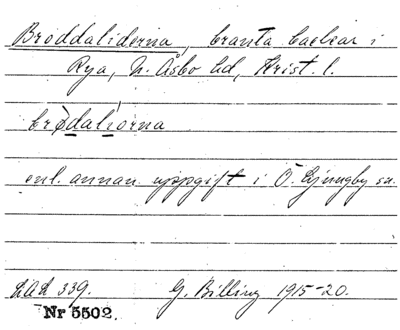 Broddaliderna, branta backar i
Rya, N. Åsbo hd, Krist. l.
brødaliorna
enl. annan uppgift i Ö. Ljungby sn.
LAL 339. G. Billing 1915-20.
Nr 5502.